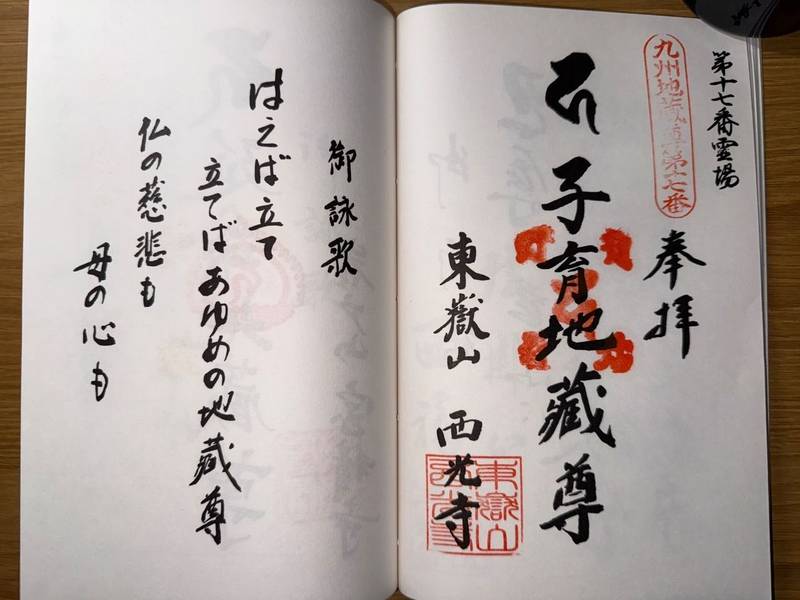 第十七番霊場
九州地蔵尊第十七番
奉拝
子育地蔵尊
東嶽山 西光寺
東嶽山
御詠歌
はえば立て
立てばあゆめの地蔵尊
仏の慈悲も
母の心も